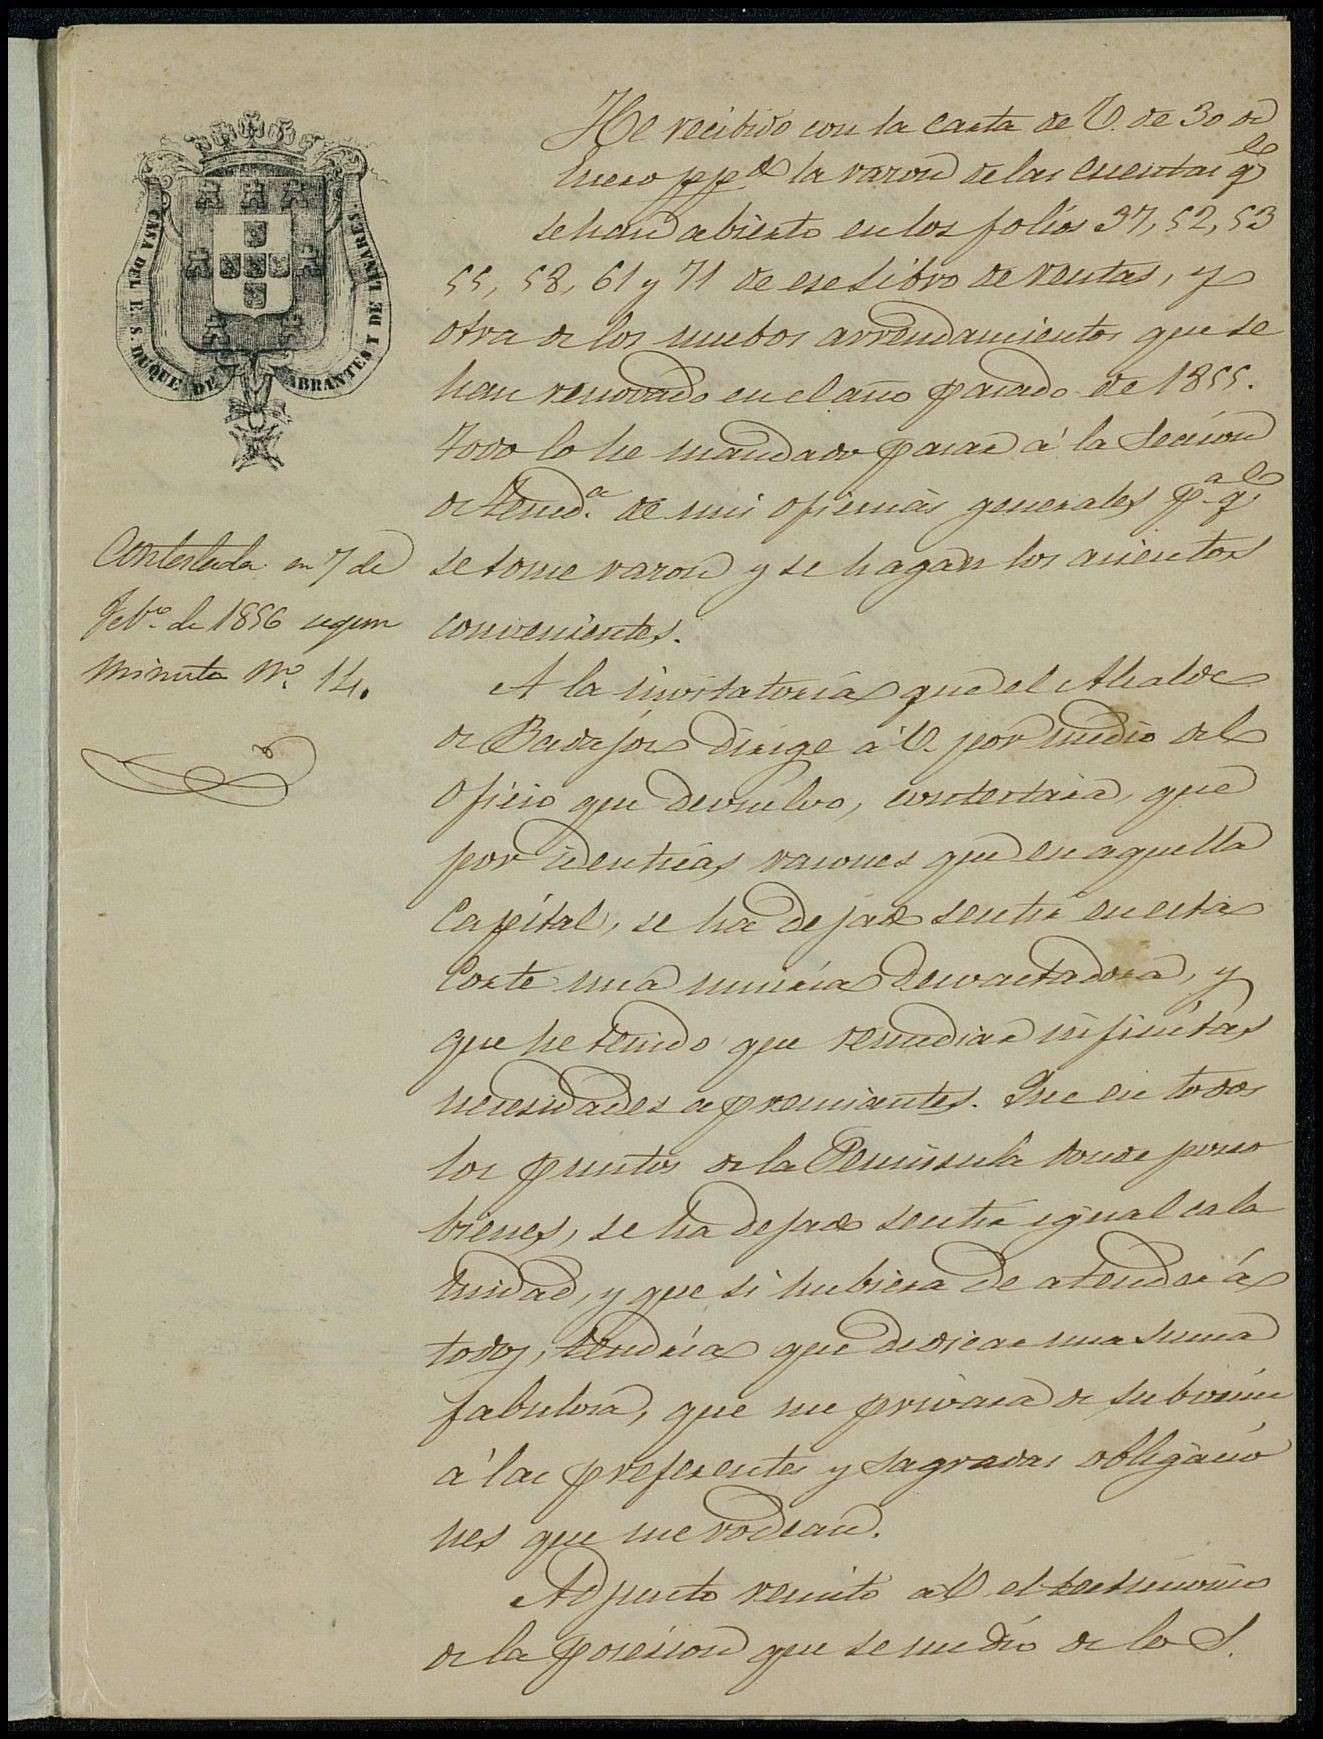 CASA DEL E. S. DUQUE DE ABRANTES Y DE LINARES.
He recibido con la carta de V. de 30 de
Enero pp.do la razon de las cuentas q.e
se han abierto en los folios 37, 52, 53
55, 58, 61 y 71 de ese Libro de rentas, y
otra de los nuebos arrendamientos que se
han renovado en el año pasado de 1855.
Todo lo he mandado pasar á la Seccion
de Tened.a de mis oficinas generales p.a q.e
se tome razon y se hagan los asientos
convenientes.
Contestada en 7 de
Feb.o de 1856 segun
minuta N.o 14.
A la invitatoria que el Alcalde
de Badajoz dirige á V. por medio del
oficio que devuelvo, contestará, que
por identicas razones que en aquella
Capital, se ha dejado sentir en esta
Corte una miseria devastadora, y
que he tenido que remediar infinitas
necesidades apremiantes. Que en todos
los puntos de la Peninsula donde poseo
bienes, se ha dejado sentir igual cala
midad, y que si hubiera de atender á
todos, tendria que dedicar una suma
fabulosa, que me privara de subvenir
á las preferentes y sagradas obligacio
nes que me rodean.
Adjunto remito á V. el testimonio
de la posesion que se me dió de los S.